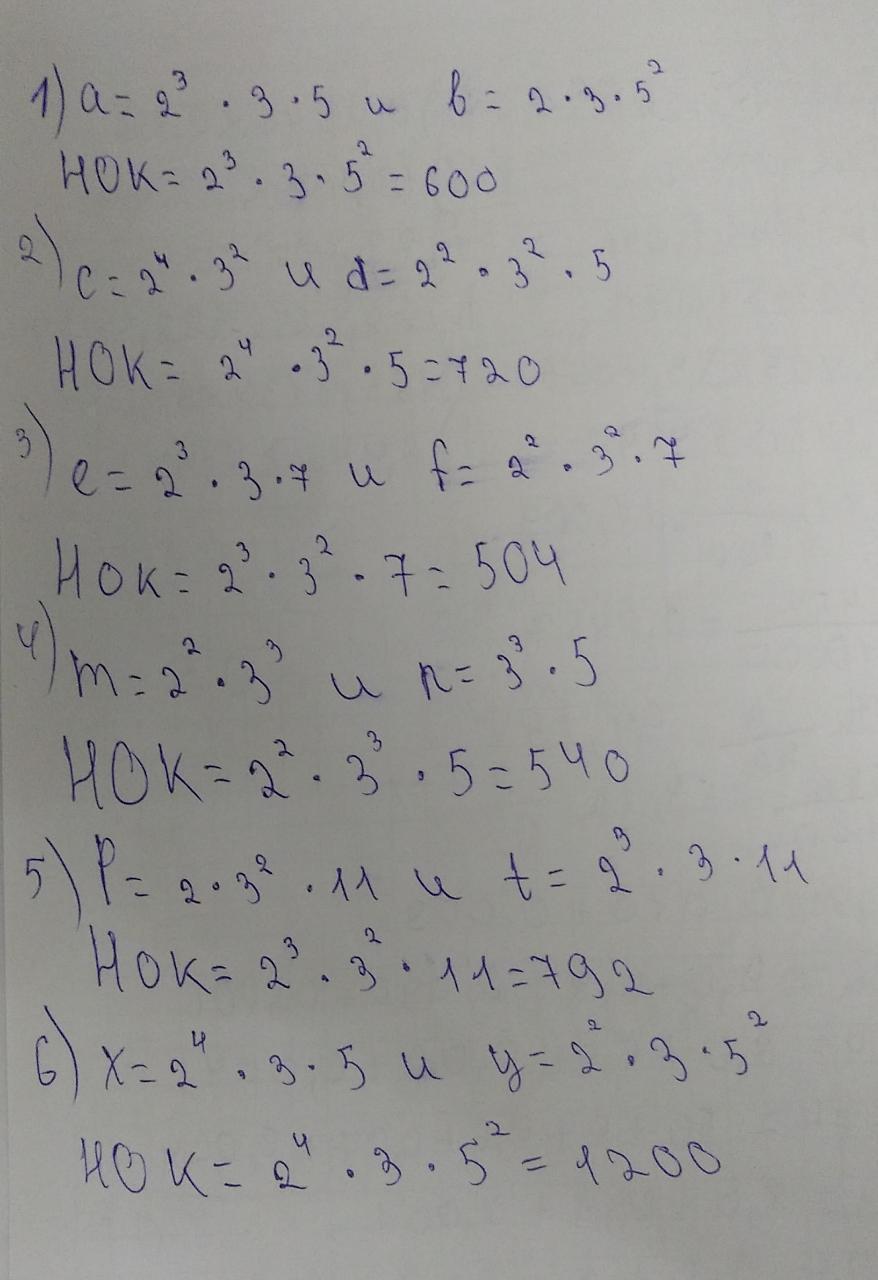 1) a = 2³ · 3 · 5 и b = 2 · 3 · 5²
НОК = 2³ · 3 · 5² = 600
2) c = 2⁴ · 3² и d = 2² · 3² · 5
НОК = 2⁴ · 3² · 5 = 720
3) e = 2³ · 3 · 7 и f = 2² · 3² · 7
НОК = 2³ · 3² · 7 = 504
4) m = 2² · 3³ и n = 3³ · 5
НОК = 2² · 3³ · 5 = 540
5) p = 2 · 3² · 11 и t = 2³ · 3 · 11
НОК = 2³ · 3² · 11 = 792
6) x = 2⁴ · 3 · 5 и y = 2² · 3 · 5²
НОК = 2⁴ · 3 · 5² = 1200